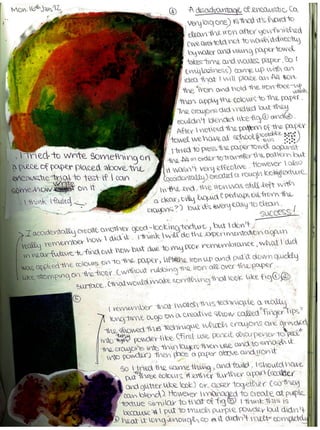 Mon 16th Jan 12
A disadvantage of encaustic (a
very big one) is that it's hard to
clean the iron after you finished
(we are told not to wash it directly
by water and using paper towel
takes time and wastes paper. So I
(my laziness) came up with an
idea that I will place an A4 on
the iron and hold the iron face-up
then apply the colours to the paper.
The crayons did melted but they
couldn't blended like fig ① and ②
After I moved the pattern of the paper
towel we have at school
I tried to press the paper towel against
the A4 in order to transfer the pattern but
it wasn't very effective. However I also
(accidentally) created a rough texture.
In the end, the iron was still left with
a clear, oily liquid (perhaps oil from the
crayons??) but it's easy to clean.
success!
I tried to write something on
a piece of paper placed above the
encaustic trial to test if I can
somehow on it
I think I failed
I accidentally create another good-looking texture, but I don't
really remember how I did it. I think I will do the experimentation again
in near future to find out how but due to my poor remembrance, what I did
was applied the colours on to the paper, lift the iron up and put it down quickly
like stomping on the floor (without rubbing the iron all over the paper
surface. (that would make something that look like fig ① ②
I remember that I watch this technique a really
long time ago on a creative show called "Finger Tips"
the showed this technique which crayons are
into powder like (first use pencil sharpener to peel
the crayons into thin layers then use and to smooth it
into powder) then place a paper above and iron it
So I tried the same thing, and failed. I should have
put three colours either further apart (
and glitter like look) or closer together (so they
can blend). However I managed to create a purple
texture similar to that of fig I think this is
because I put to much purple powder but didn't
heat it long enough, so it didn't melt completely